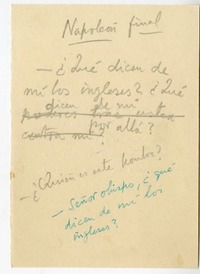 Napoleón final
— ¿Qué dicen de
mí los ingleses? ¿Qué
dicen de mí
poderes tras estan
contra mí por allá?
— ¿Quién es este hombre?
— Señor obispo, ¿qué
dicen de mí los
ingleses?